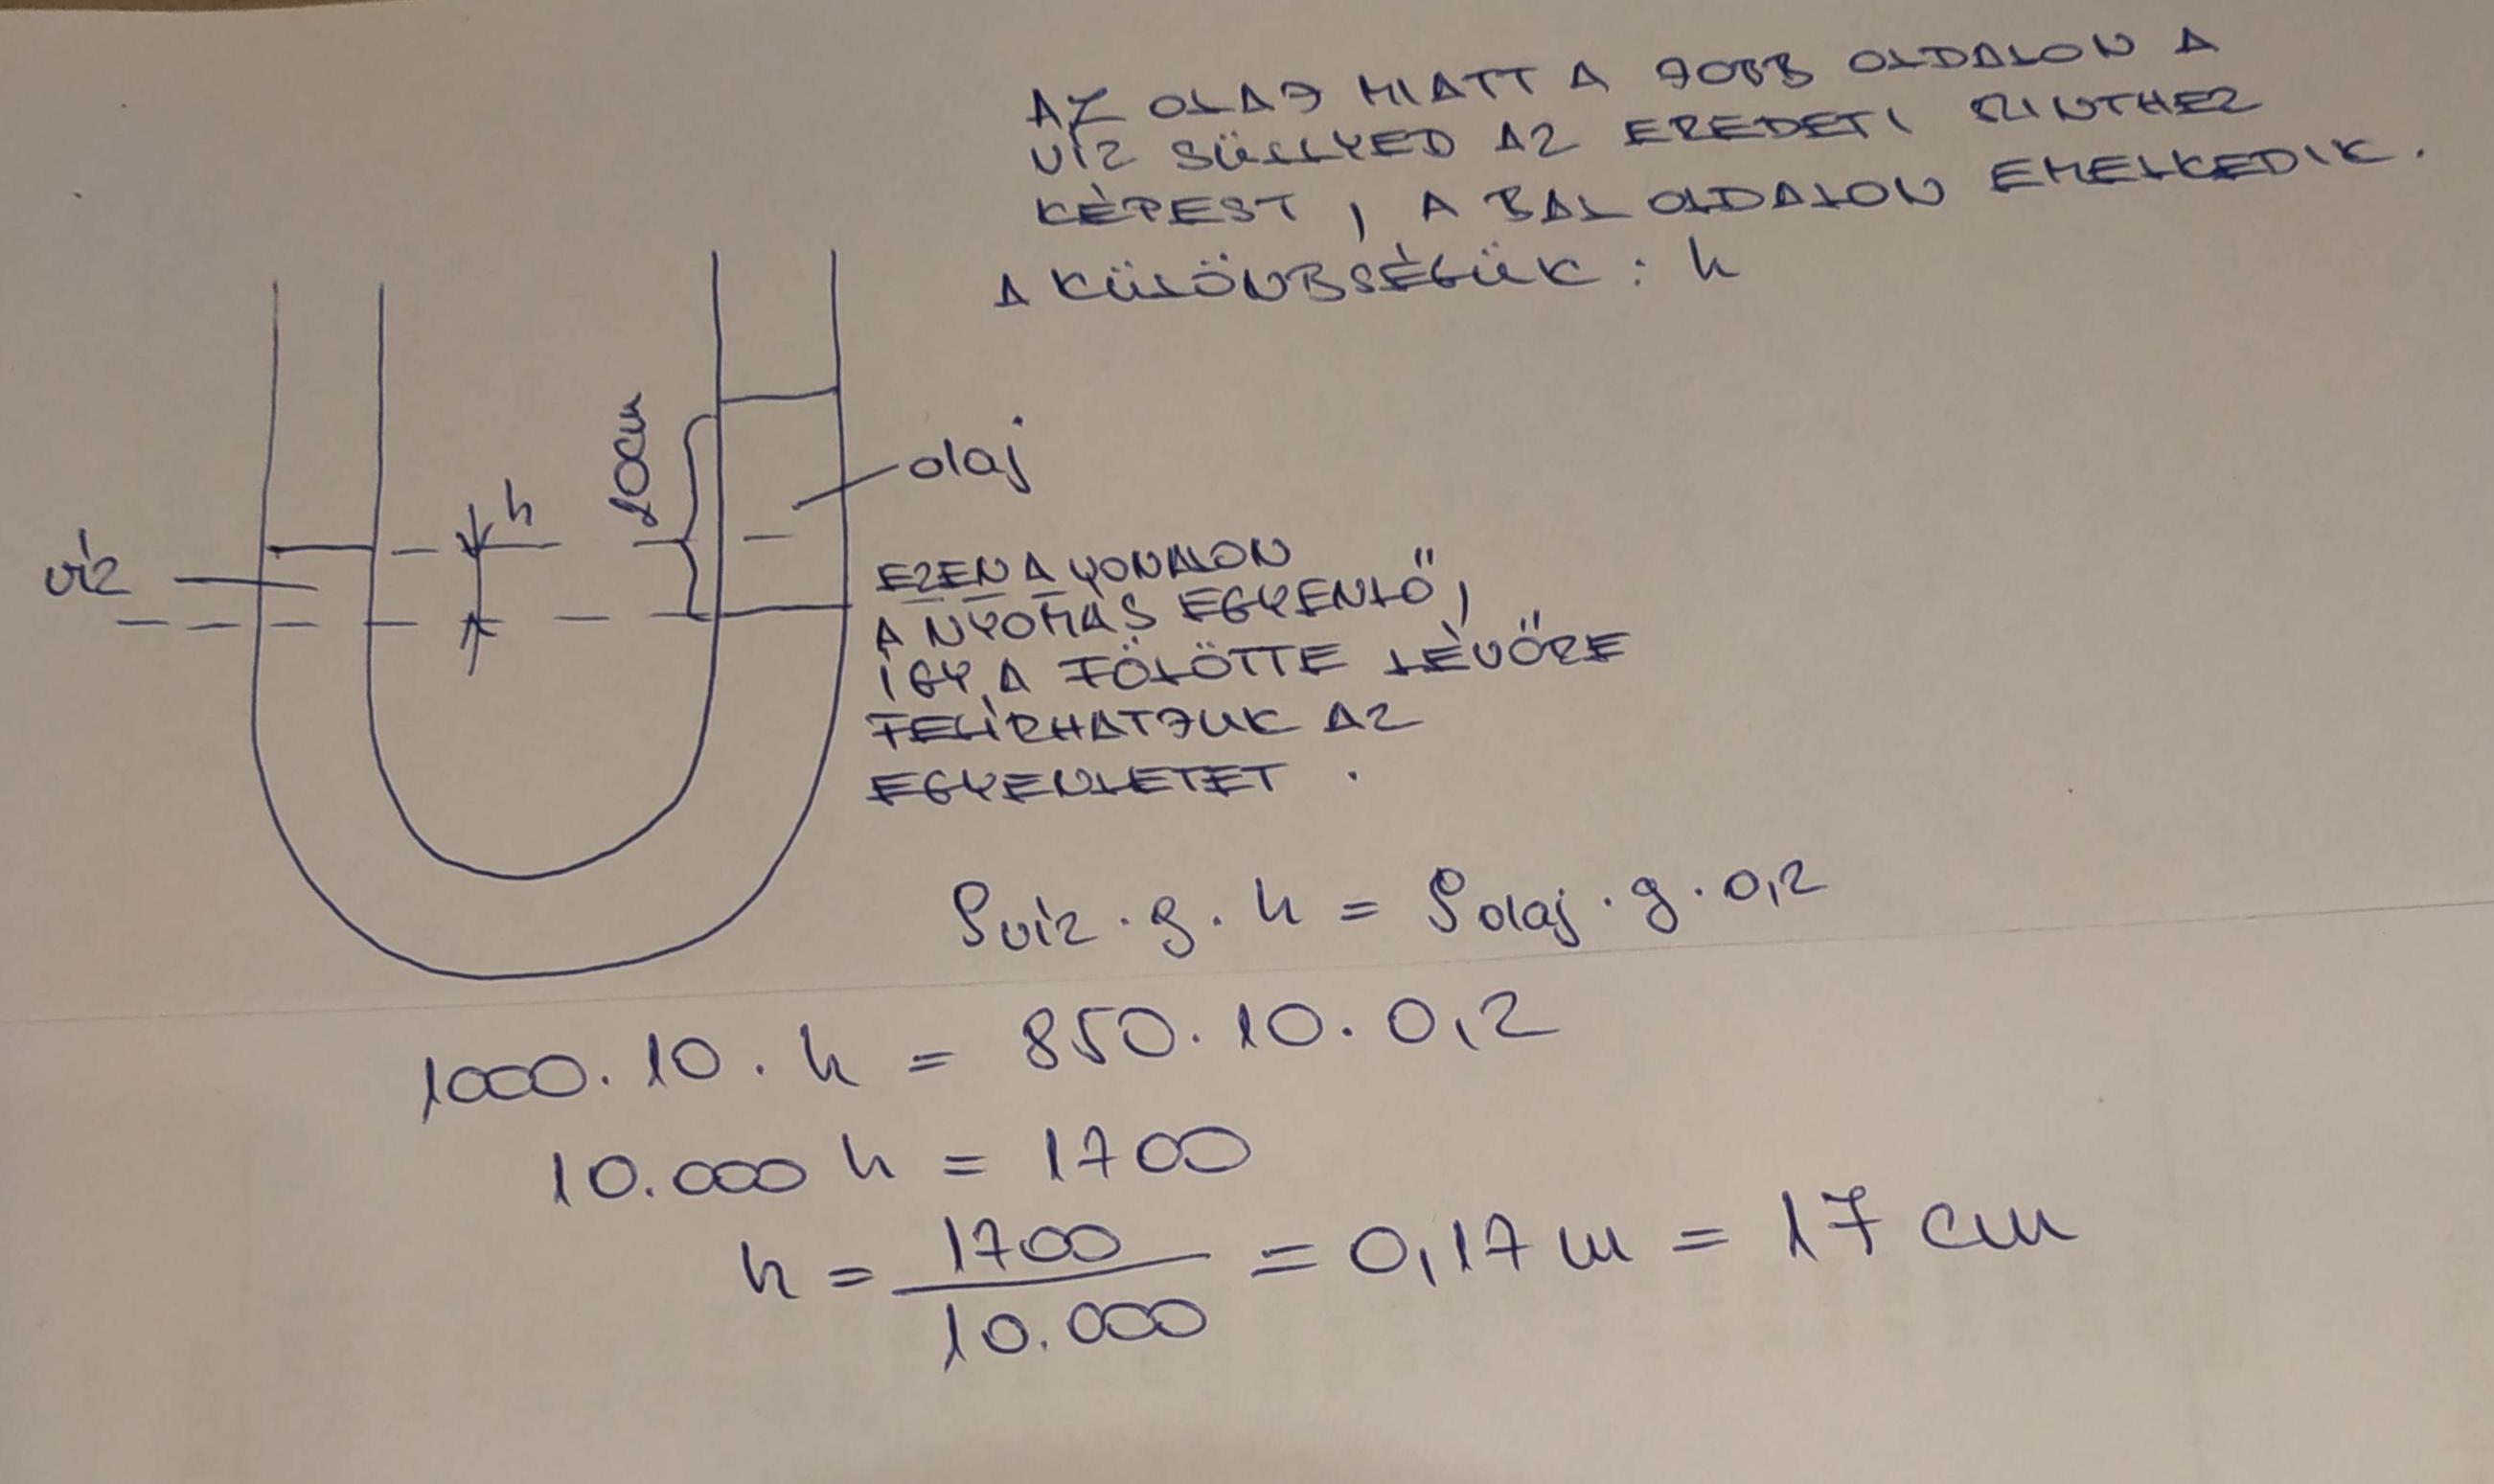 AZ OLAJ MIATT A JOBB OLDALON A
VÍZ SÜLLYED AZ EREDETI SZINTHEZ
KÉPEST, A BAL OLDALON EMELKEDIK.
A KÜLÖNBSÉGÜK: h
olaj
h
víz
EZEN A VONALON
A NYOMÁS EGYENLŐ,
ÍGY A FÖLÖTTE LÉVŐRE
FELÍRHATJUK AZ
EGYENLETET.
ρvíz · g · h = ρolaj · g · 0,2
1000 · 10 · h = 850 · 10 · 0,2
10.000 h = 1700
h = 1700/10.000 = 0,17 m = 17 cm